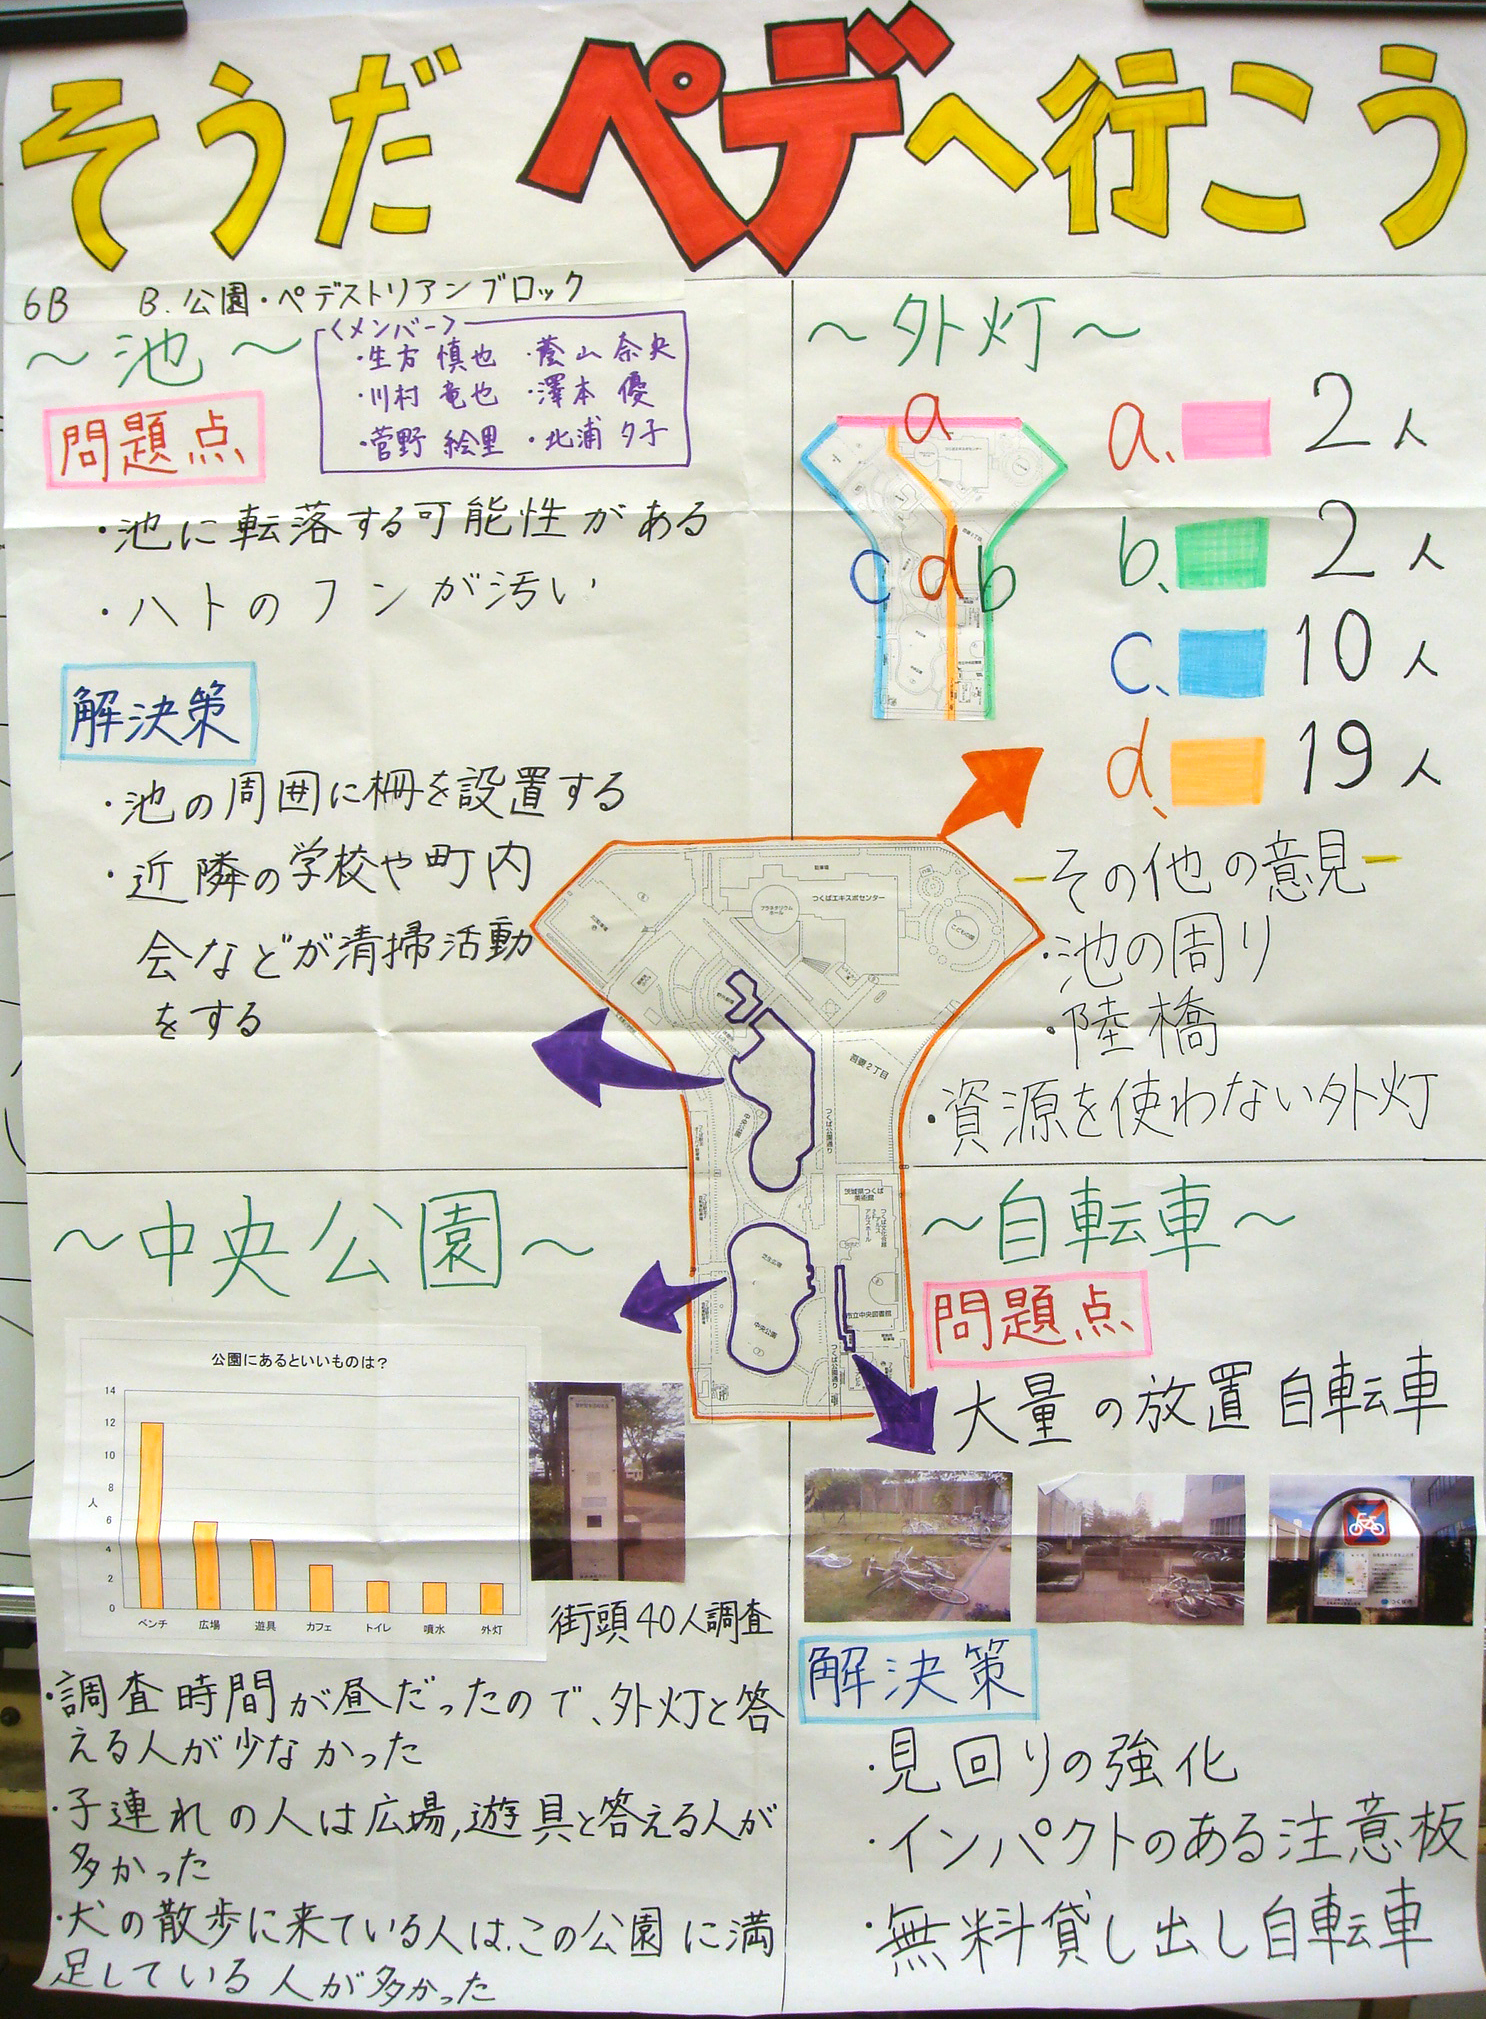 そうだ ペデへ行こう
6B B.公園・ペデストリアンブロック
〜池〜
〈メンバー〉
・生方 慎也 ・蔭山 奈央
・川村 竜也 ・澤本 優
・菅野 絵里 ・北浦 夕子
問題点
・池に転落する可能性がある
・ハトのフンが汚い
解決策
・池の周囲に柵を設置する
・近隣の学校や町内
会などが清掃活動
をする
〜外灯〜
a
c d b
a、 2人
b、 2人
c、 10人
d、 19人
ーその他の意見ー
・池の周り
・陸橋
・資源を使わない外灯
駐車場
つくばエキスポセンター
プラネタリウム
ホール
こどもの国
吾妻2丁目
中央公園
つくば公園通り
茨城県つくば
美術館
つくば文化会館
アルスホール
芝生広場
中央公園
市立中央図書館
つくば公園通り
〜中央公園〜
公園にあるといいものは?
人
14
12
10
8
6
4
2
0
ベンチ 広場 遊具 カフェ トイレ 噴水 外灯
街頭40人調査
・調査時間が昼だったので、外灯と答
える人が少なかった
・子連れの人は広場,遊具と答える人が
多かった
・犬の散歩に来ている人は、この公園に満
足している人が多かった
〜自転車〜
問題点
大量の放置自転車
解決策
・見回りの強化
・インパクトのある注意板
・無料貸し出し自転車